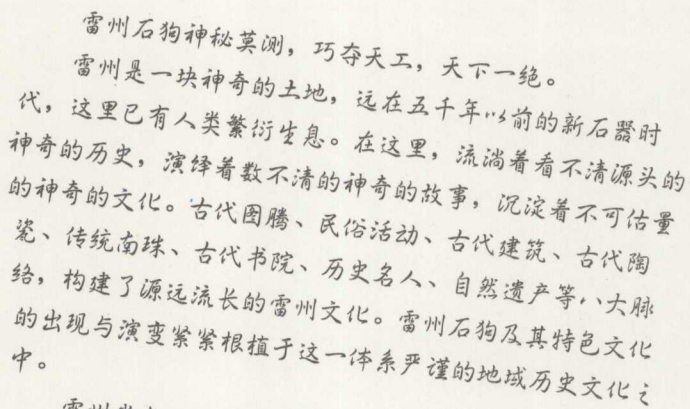 雷州石狗神秘莫测，巧夺天工，天下一绝。
雷州是一块神奇的土地，远在五千年以前的新石器时
代，这里已有人类繁衍生息。在这里，流淌着看不清源头的
神奇的历史，演绎着数不清的神奇的故事，沉淀着不可估量
的神奇的文化。古代图腾、民俗活动、古代建筑、古代陶
瓷、传统南珠、古代书院、历史名人、自然遗产等八大脉
络，构建了源远流长的雷州文化。雷州石狗及其特色文化
的出现与演变紧紧根植于这一体系严谨的地域历史文化之
中。